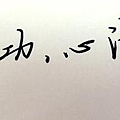 功、心